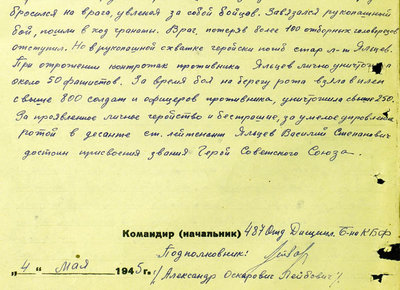 бросился на врага, увлекая за собой бойцов. Завязался рукопашный
бой, пошли в ход гранаты. Враг, потеряв более 100 отборных головорезов
отступил. Но в рукопашной схватке геройски погиб стар. л-т Яльцев.
При отражении контратак противника Яльцев лично уничтожил
около 50 фашистов. За время боя на берегу рота взяла в плен
свыше 800 солдат и офицеров противника, уничтожила свыше 250.
За проявленное личное геройство и бесстрашие, за умелое управление
ротой в десанте ст. лейтенант Яльцев Василий Степанович
достоин присвоения звания Герой Советского Союза.
Командир (начальник) 487 Отд Дисципл. Б-на КБФ
Подполковник:
"4" мая 1945 г. /Александр Оскарович Лейбович/